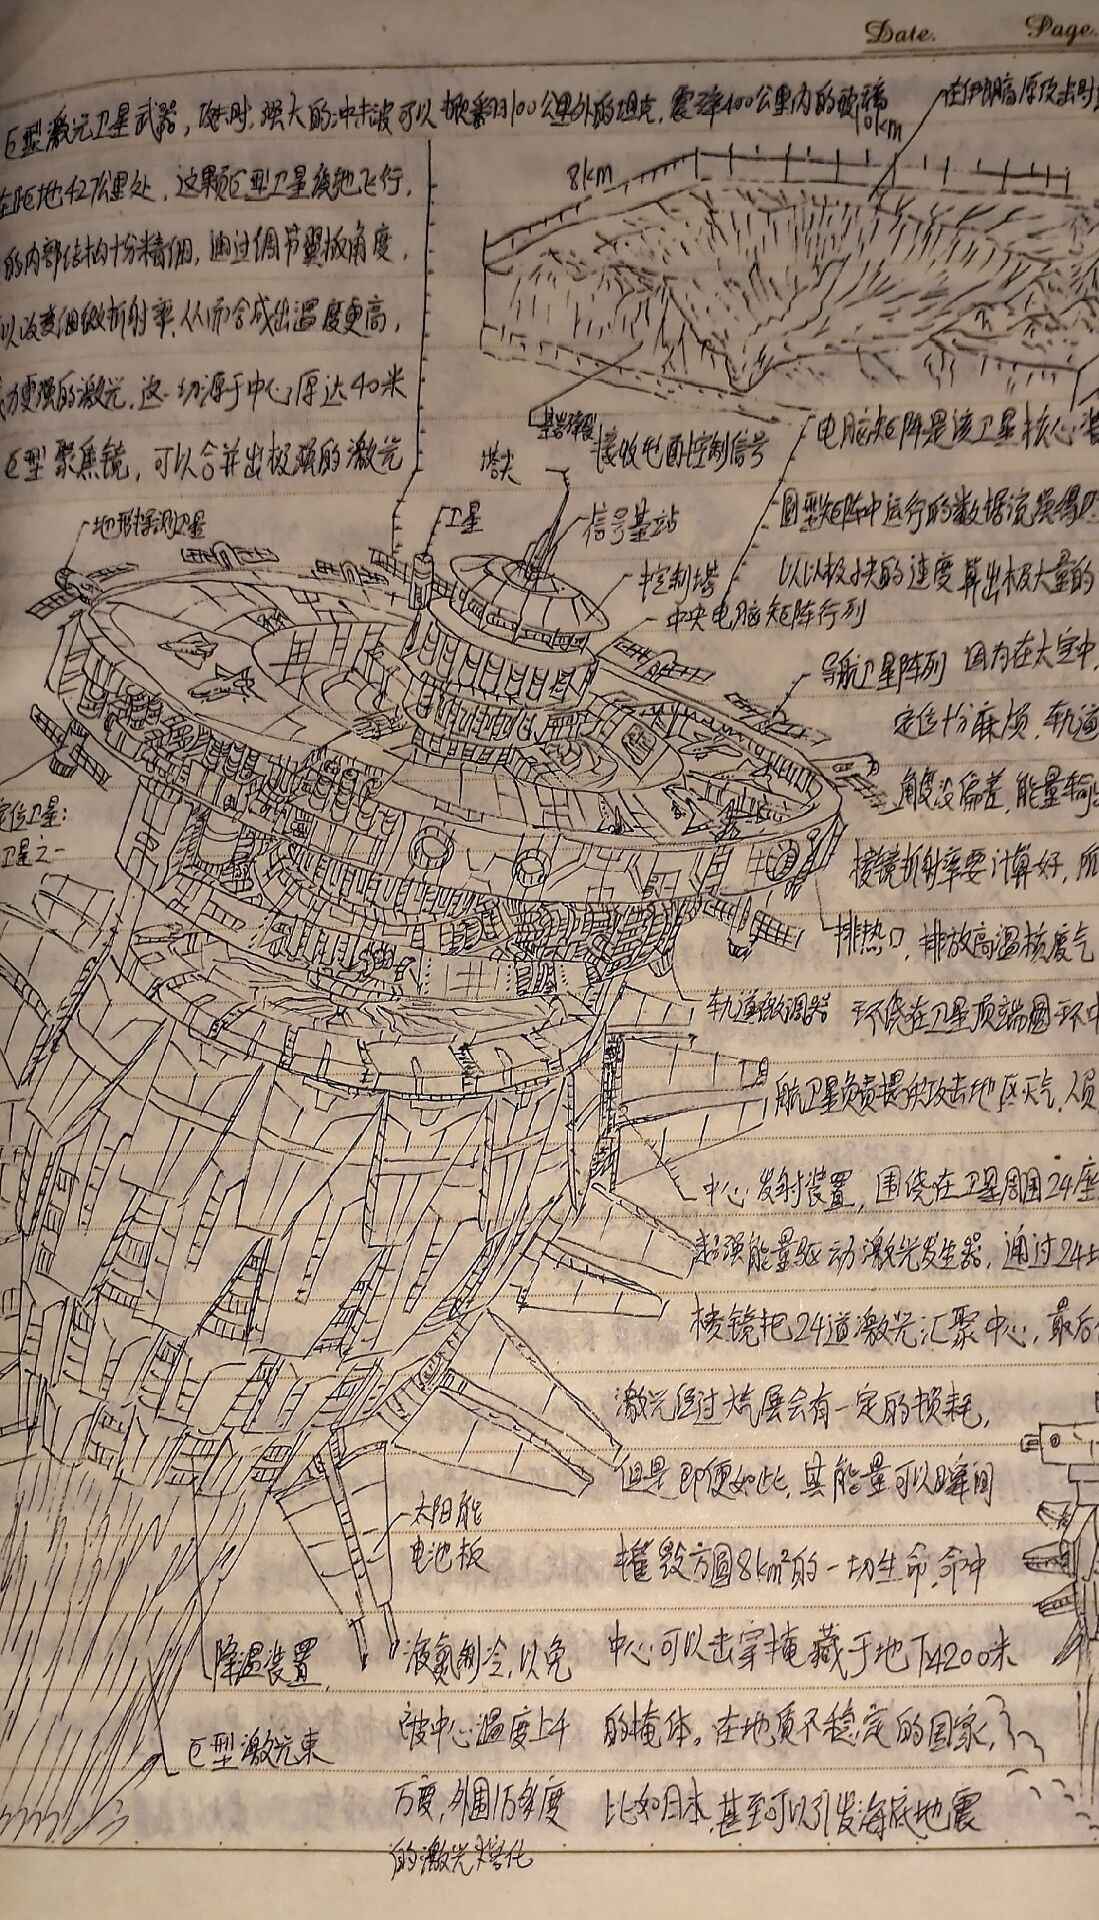 Date. Page.
巨型激光卫星武器，攻击时，强大的冲击波可以掀翻100公里外的坦克，震碎400公里内的玻璃
在伊朗高原攻击时
10km
8km
在距地427公里处，这颗巨型卫星缓慢飞行，
的内部结构十分精细，通过调节翼板角度，
以改变细微折射率，从而合成出温度更高，
更强的激光，这一切源于中心厚达40米
巨型聚焦镜，可以合并出极强的激光
基岩弹裂
塔尖
接收地面控制信号
电脑矩阵是该卫星核心
圆型矩阵中运行的数据流
以以极快的速度算出极大量的
地形探测卫星
卫星
信号基站
控制塔
中央电脑矩阵行列
导航卫星阵列 因为在太空中，
定位十分麻烦，轨道
角度没偏差，能量输出
棱镜折射率要计算好，所
定位卫星：
卫星之一
排热口，排放高温核废气
轨道微调器 环绕在卫星顶端圆环中
航卫星负责提供攻击地区天气，人员
中心发射装置，围绕在卫星周围24座
超强能量驱动激光发生器，通过24块
棱镜把24道激光汇聚中心，最后
激光经过大气层会有一定的损耗，
但是即便如此，其能量可以瞬间
摧毁方圆8km²的一切生命，命中
中心可以击穿掩藏于地下4200米
的掩体。在地质不稳定的国家，
比如日本，甚至可以引发海底地震
太阳能
电池板
降温装置，
液氦制冷，以免
被中心温度上千
万度，外围1万多度
的激光熔化
巨型激光束